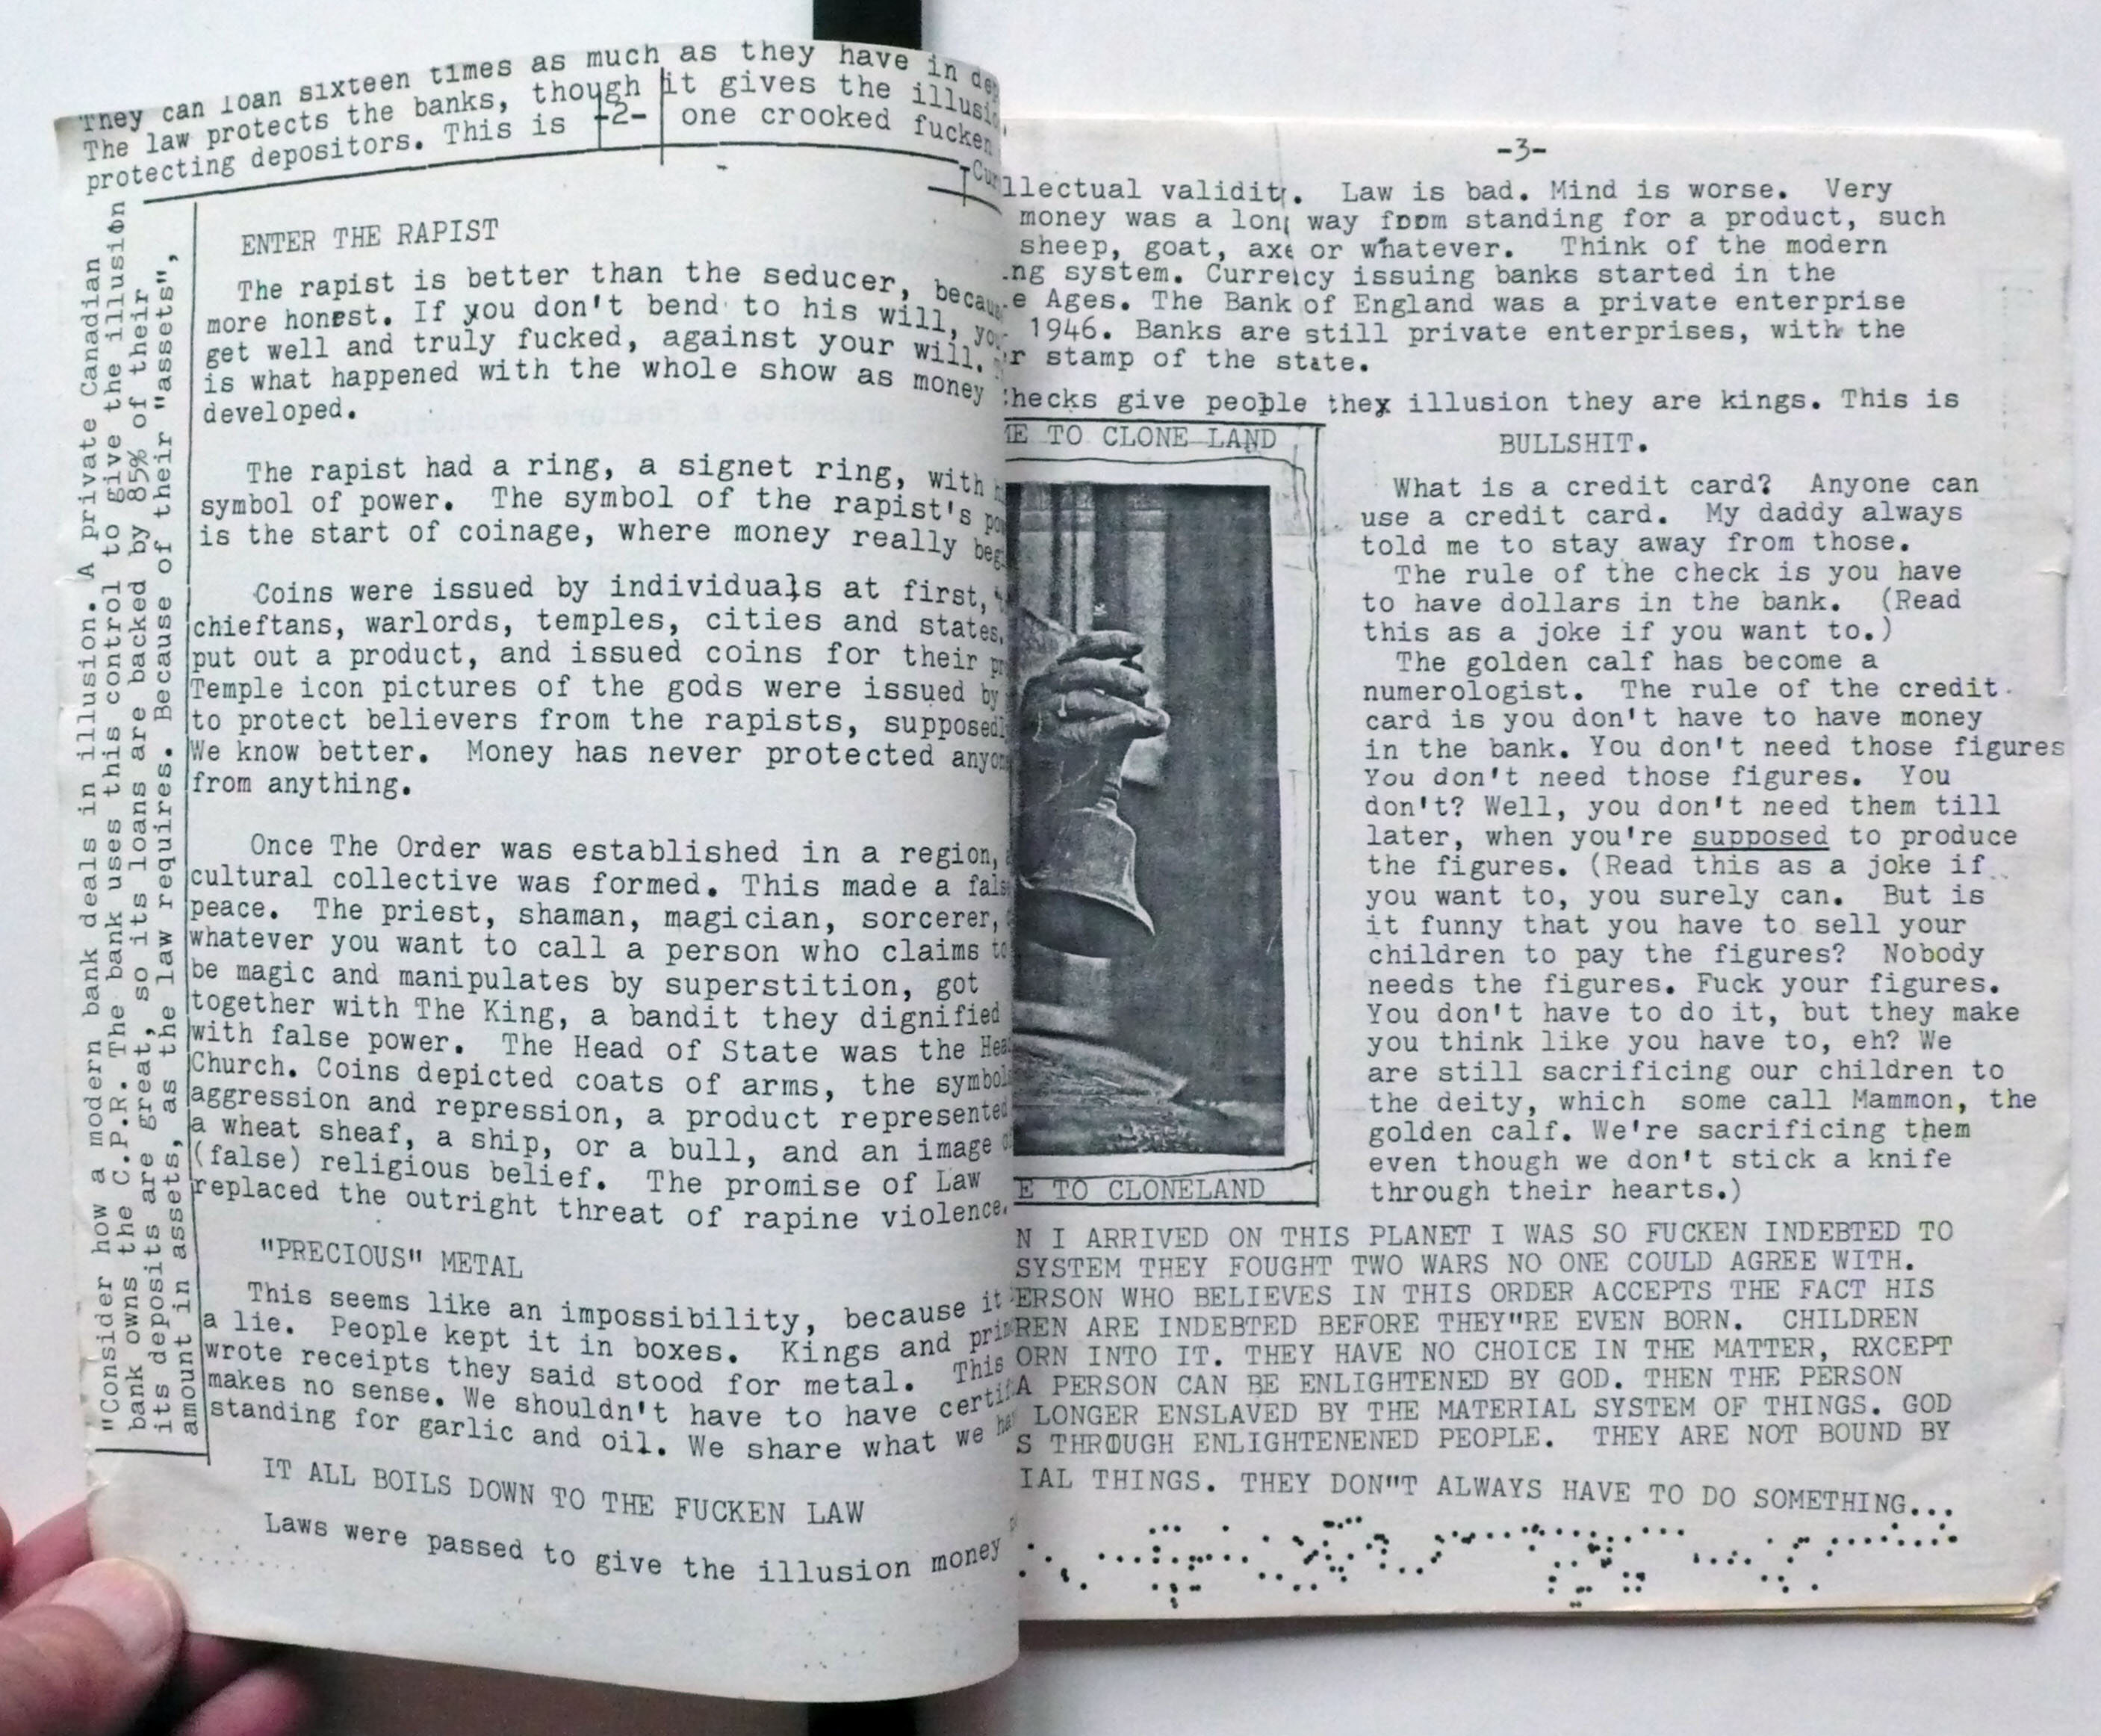 They can loan sixteen times as much as they have in
The law protects the banks, though it gives the
protecting depositors. This is one crooked fucken
-2-
"Consider how a modern bank deals in illusion. A private Canadian
bank owns the C.P.R. The bank uses this control to give the illusion
its deposits are great, so its loans are backed by 85% of their
amount in assets, as the law requires. Because of their "assets",
ENTER THE RAPIST
The rapist is better than the seducer,
more honest. If you don't bend to his will,
get well and truly fucked, against your will.
is what happened with the whole show as money
developed.
The rapist had a ring, a signet ring, with
symbol of power. The symbol of the rapist's
is the start of coinage, where money really
Coins were issued by individuals at first,
chieftans, warlords, temples, cities and states,
put out a product, and issued coins for their
Temple icon pictures of the gods were issued by
to protect believers from the rapists,
We know better. Money has never protected
from anything.
Once The Order was established in a region,
cultural collective was formed. This made a
peace. The priest, shaman, magician, sorcerer,
whatever you want to call a person who claims to
be magic and manipulates by superstition, got
together with The King, a bandit they dignified
with false power. The Head of State was the
Church. Coins depicted coats of arms, the
aggression and repression, a product represented
a wheat sheaf, a ship, or a bull, and an image
(false) religious belief. The promise of Law
replaced the outright threat of rapine violence.
"PRECIOUS" METAL
This seems like an impossibility, because it
a lie. People kept it in boxes. Kings and
wrote receipts they said stood for metal. This
makes no sense. We shouldn't have to have
standing for garlic and oil. We share what we
IT ALL BOILS DOWN TO THE FUCKEN LAW
Laws were passed to give the illusion money
-3-
llectual validity. Law is bad. Mind is worse. Very
money was a long way from standing for a product, such
sheep, goat, axe or whatever. Think of the modern
ng system. Currency issuing banks started in the
e Ages. The Bank of England was a private enterprise
1946. Banks are still private enterprises, with the
r stamp of the state.
hecks give people thex illusion they are kings. This is
BULLSHIT.
E TO CLONE LAND
What is a credit card? Anyone can
use a credit card. My daddy always
told me to stay away from those.
The rule of the check is you have
to have dollars in the bank. (Read
this as a joke if you want to.)
The golden calf has become a
numerologist. The rule of the credit
card is you don't have to have money
in the bank. You don't need those figures
You don't need those figures. You
don't? Well, you don't need them till
later, when you're supposed to produce
the figures. (Read this as a joke if
you want to, you surely can. But is
it funny that you have to sell your
children to pay the figures? Nobody
needs the figures. Fuck your figures.
You don't have to do it, but they make
you think like you have to, eh? We
are still sacrificing our children to
the deity, which some call Mammon, the
golden calf. We're sacrificing them
even though we don't stick a knife
through their hearts.)
E TO CLONELAND
N I ARRIVED ON THIS PLANET I WAS SO FUCKEN INDEBTED TO
SYSTEM THEY FOUGHT TWO WARS NO ONE COULD AGREE WITH.
ERSON WHO BELIEVES IN THIS ORDER ACCEPTS THE FACT HIS
REN ARE INDEBTED BEFORE THEY"RE EVEN BORN. CHILDREN
ORN INTO IT. THEY HAVE NO CHOICE IN THE MATTER, RXCEPT
A PERSON CAN BE ENLIGHTENED BY GOD. THEN THE PERSON
LONGER ENSLAVED BY THE MATERIAL SYSTEM OF THINGS. GOD
S THROUGH ENLIGHTENENED PEOPLE. THEY ARE NOT BOUND BY
IAL THINGS. THEY DON"T ALWAYS HAVE TO DO SOMETHING...